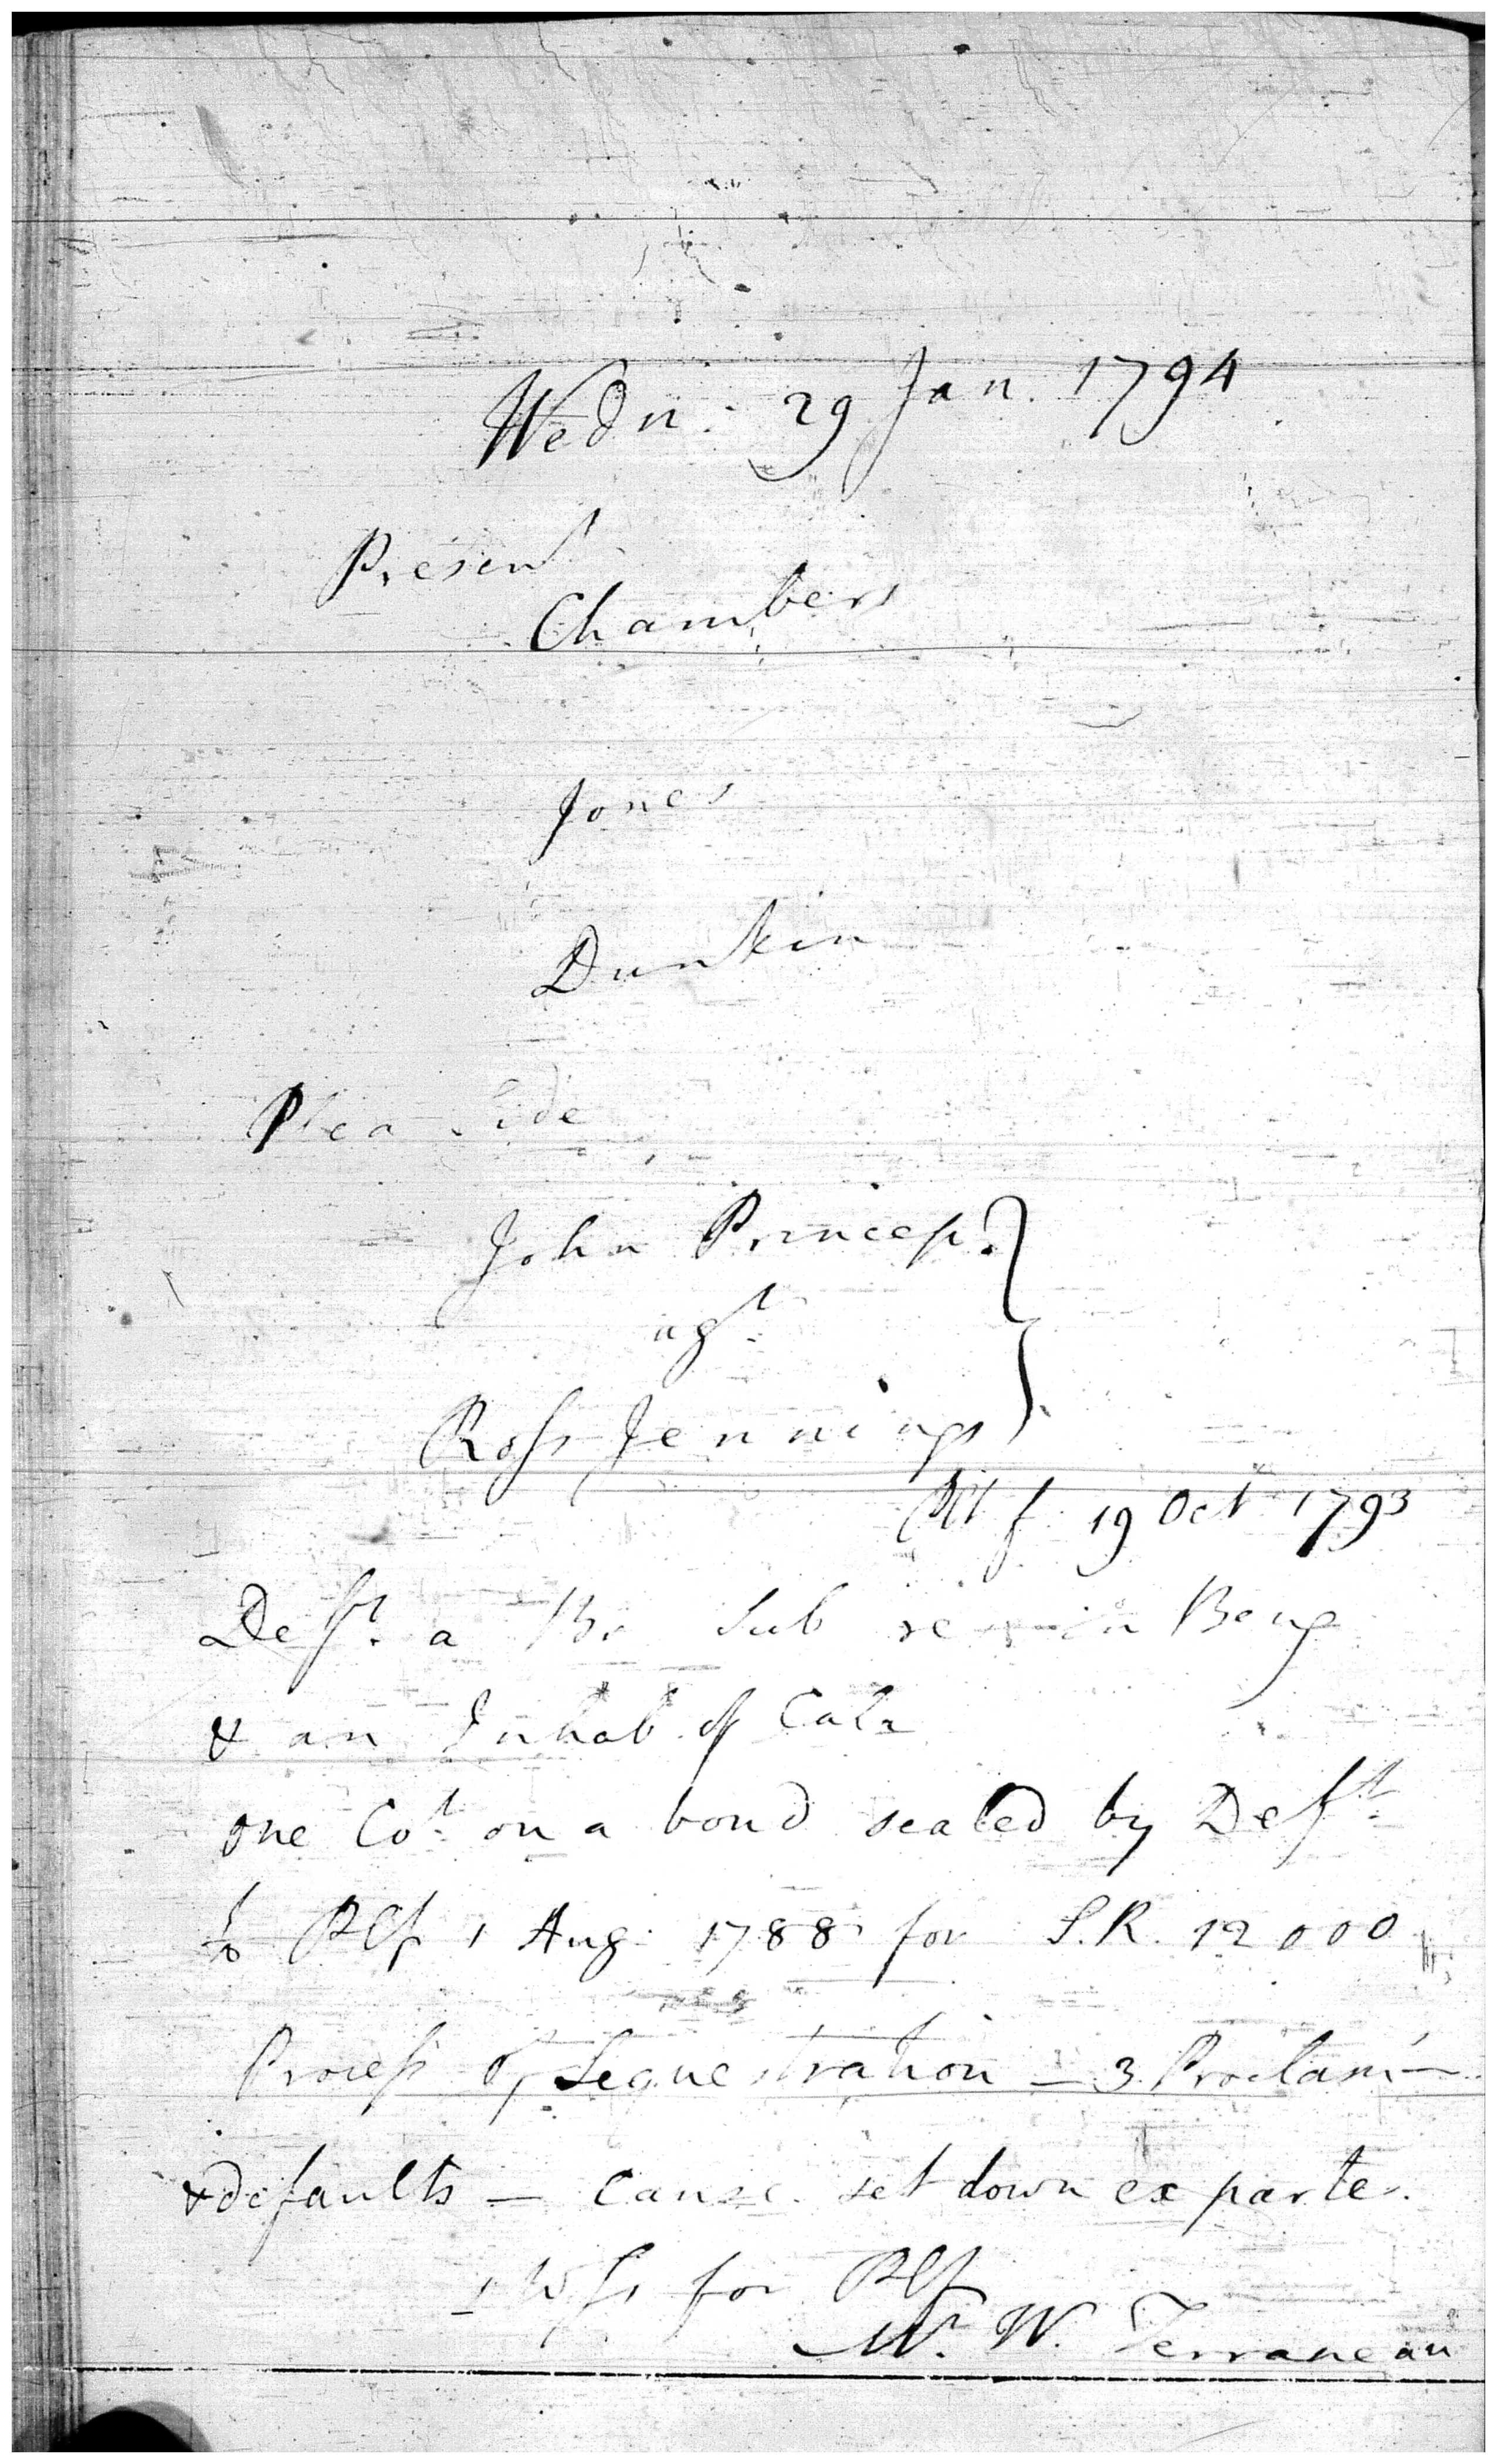 Wedn. 29 Jan. 1794
Present
Chambers
Jones
Dunkin
Plea Side
John Prinsep
agt.
Ross Jennings
Plt f. 19 Oct 1793
Deft. a Br. Sub in Beng
& an Inhab of Calc
one Cot. on a bond sealed by Deft.
to Plf 1 Aug. 1788 for S.R. 12000
Process of Sequestration – 3 Proclam –
& defaults – Cause set down ex parte.
1 Wss for Plf
Mr. W. Terraneau